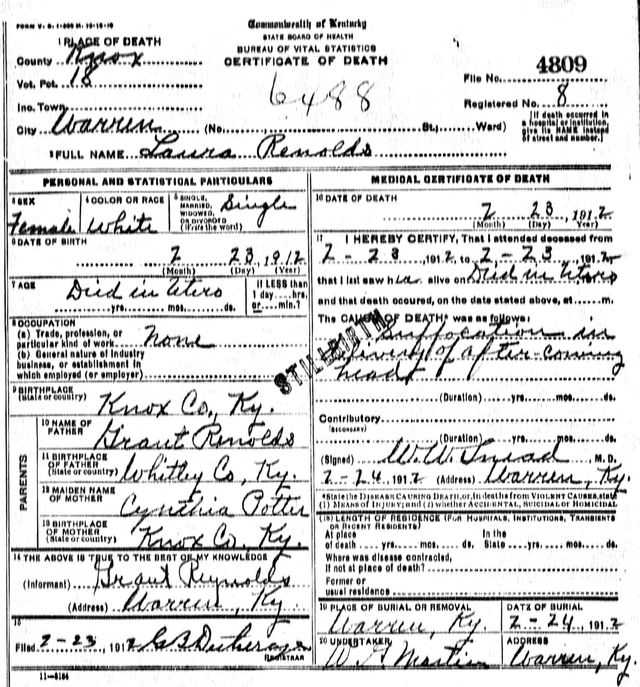 FORM V. S. 1-300 M. 10-16-10
Commonwealth of Kentucky
STATE BOARD OF HEALTH
BUREAU OF VITAL STATISTICS
CERTIFICATE OF DEATH
1 PLACE OF DEATH
County Knox
Vot. Pct. 18
Inc. Town
City Warren (No. St.; Ward)
6488
File No. 4809
Registered No. 8
[If death occurred in a hospital or institution, give its NAME instead of street and number.]
2 FULL NAME Laura Renolds
PERSONAL AND STATISTICAL PARTICULARS
3 SEX Female
4 COLOR OR RACE White
5 SINGLE, MARRIED, WIDOWED, OR DIVORCED (Write the word) Single
6 DATE OF BIRTH
2 23, 1912
(Month) (Day) (Year)
7 AGE Died in Utero
yrs. mos. ds.
If LESS than 1 day....hrs. or....min.?
8 OCCUPATION
(a) Trade, profession, or particular kind of work None
(b) General nature of industry business, or establishment in which employed (or employer)
9 BIRTHPLACE
(State or country) Knox Co, Ky.
PARENTS
10 NAME OF FATHER Grant Renolds
11 BIRTHPLACE OF FATHER (State or country) Whitley Co, Ky.
12 MAIDEN NAME OF MOTHER Cynthia Potter
13 BIRTHPLACE OF MOTHER (State or country) Knox Co, Ky.
14 THE ABOVE IS TRUE TO THE BEST OF MY KNOWLEDGE
(Informant) Grant Reynolds
(Address) Warren, Ky.
15
Filed 2-23, 1912
REGISTRAR
11-5184
MEDICAL CERTIFICATE OF DEATH
16 DATE OF DEATH
2 23, 1912
(Month) (Day) (Year)
17 I HEREBY CERTIFY, That I attended deceased from
2-23, 1912, to 2-23, 1912
that I last saw her alive on Died in Utero
and that death occured, on the date stated above, at m.
The CAUSE OF DEATH* was as follows:
Suffocation in
delivery of after-coming
head
STILLBIRTH
(Duration) yrs. mos. ds.
Contributory
(SECONDARY)
(Duration) yrs. mos. ds.
(Signed) W. W. Tinsad M. D.
2-24, 1912 (Address) Warren, Ky.
*State the DISEASE CAUSING DEATH, or, in deaths from VIOLENT CAUSES, state
(1) MEANS OF INJURY; and (2) whether ACCIDENTAL, SUICIDAL or HOMICIDAL
(18) LENGTH OF RESIDENCE (FOR HOSPITALS, INSTITUTIONS, TRANSIENTS OR RECENT RESIDENTS)
At place of death yrs. mos. ds. In the State yrs. mos. ds.
Where was disease contracted, If not at place of death?
Former or usual residence
19 PLACE OF BURIAL OR REMOVAL Warren, Ky.
DATE OF BURIAL 2-24, 1912
20 UNDERTAKER W G Martin
ADDRESS Warren, Ky.